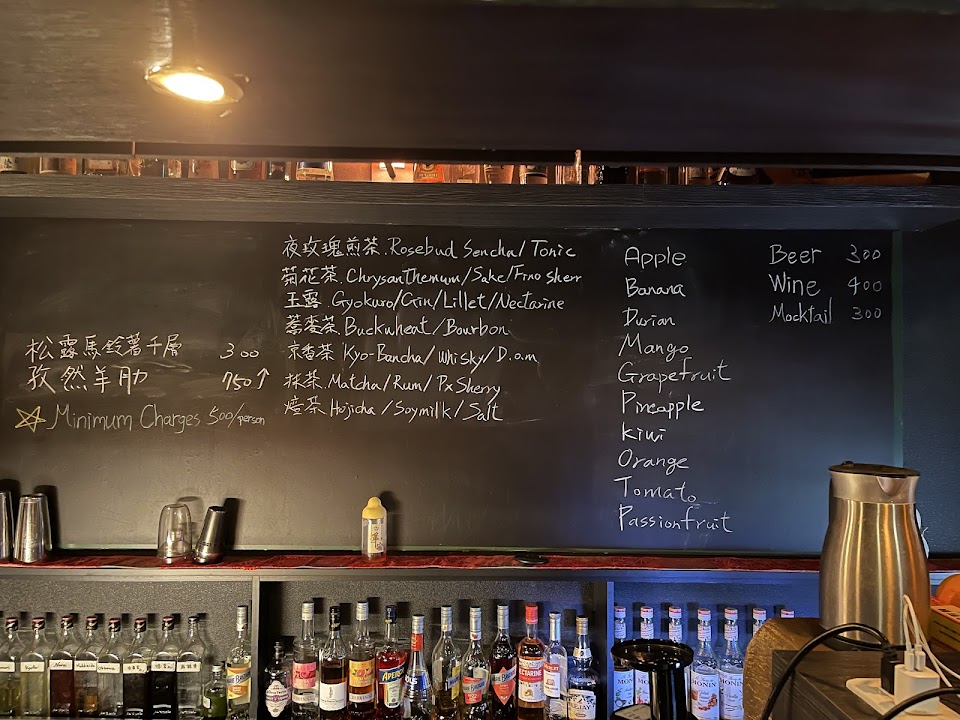 松露馬鈴薯千層 300
孜然羊肋 750↑
☆ Minimum Charges 500/person
夜玫瑰煎茶. Rosebud Sencha/Tonic
菊花茶. Chrysanthemum/Sake/Fino Sherr
玉露. Gyokuro/Gin/Lillet/Nectarine
蕎麥茶. Buckwheat/Bourbon
京番茶 Kyo-Bancha/Whisky/D.o.m
抹茶. Matcha/Rum/Px Sherry
焙茶. Hojicha/Soymilk/Salt
Apple
Banana
Durian
Mango
Grapefruit
Pineapple
Kiwi
Orange
Tomato
Passionfruit
Beer 300
Wine 400
Mocktail 300
APEROL
NECTARINE
MONIN
MONIN
MONIN